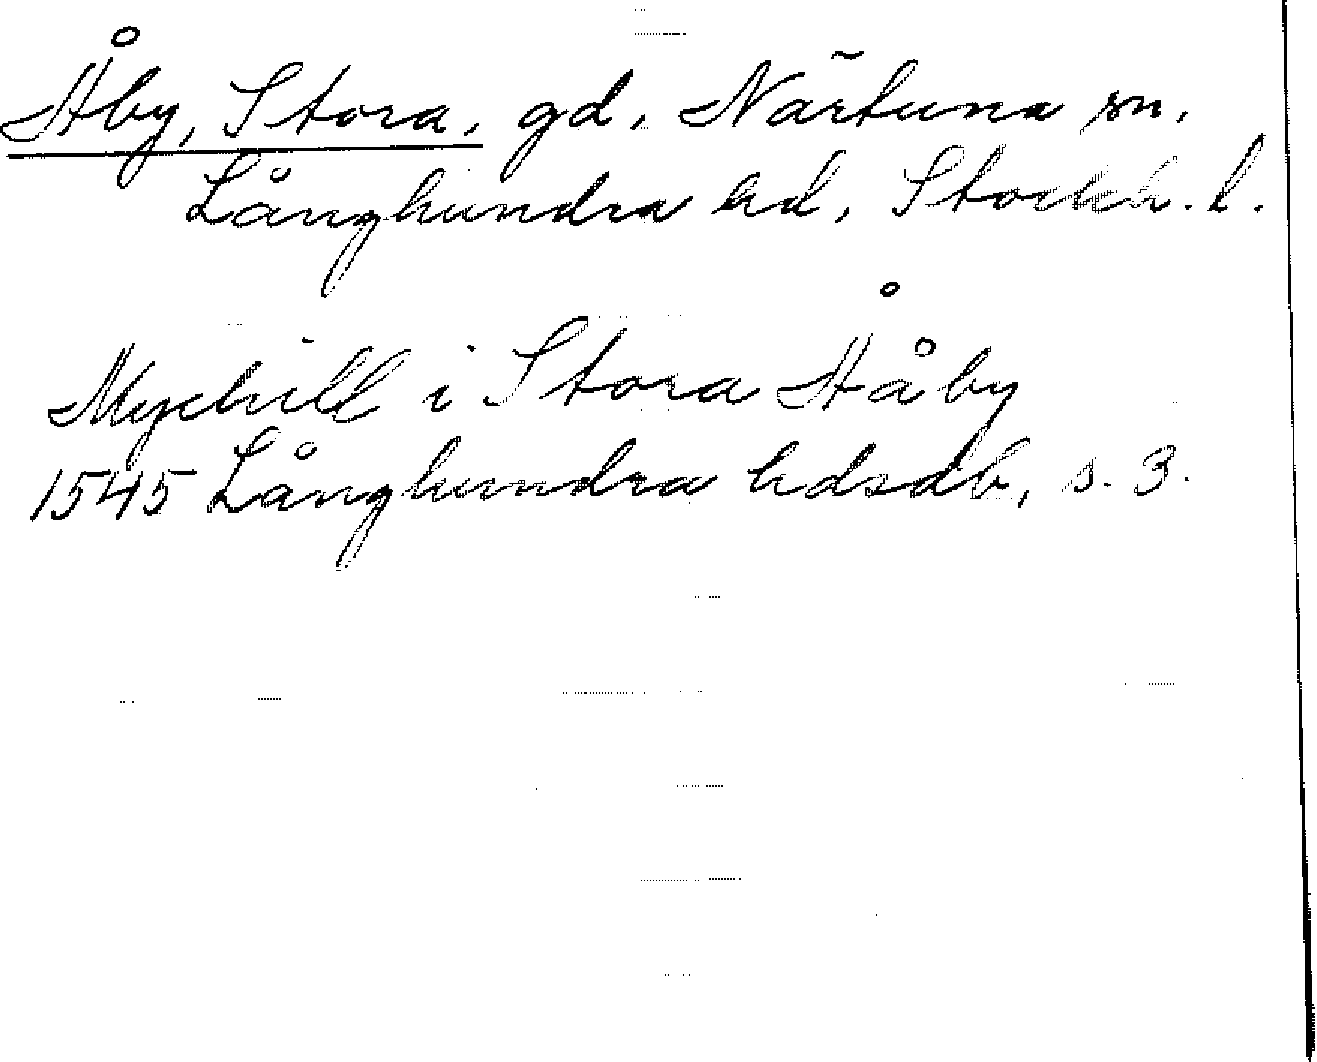 Åby, Stora, gd, Närtuna sn,
Långhundra hd, Stockh. l.
Mychill i Stora Ååby
1545 Långhundra hdsdb, s. 3.